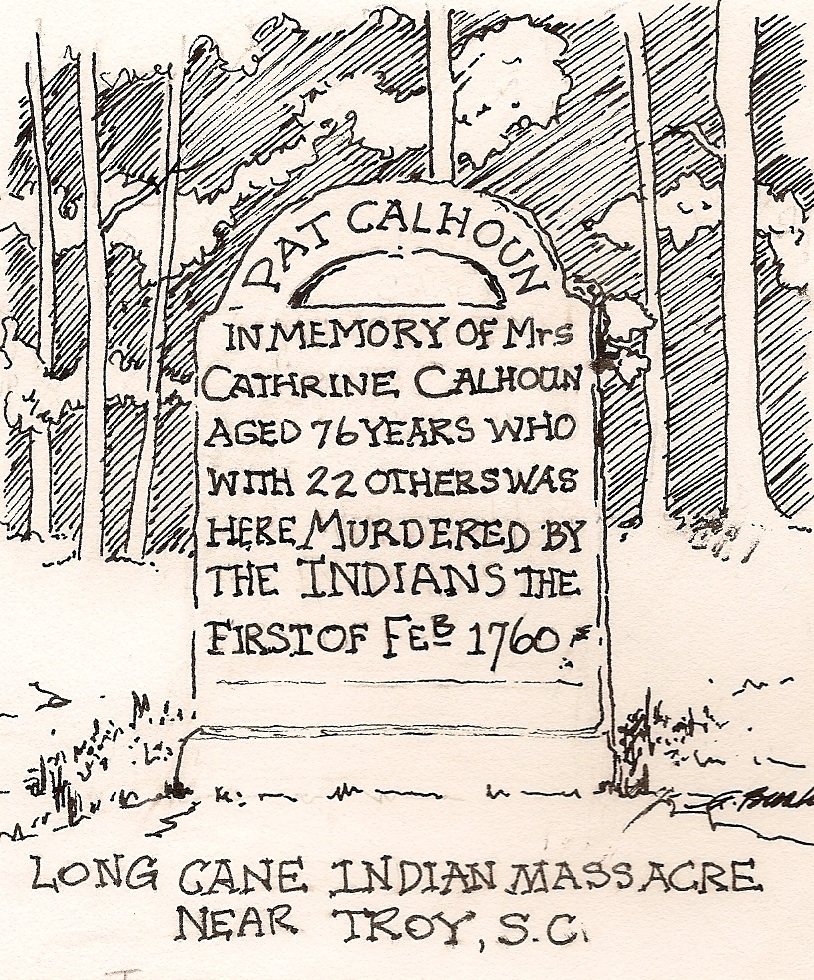 PAT CALHOUN
IN MEMORY OF Mrs
CATHRINE CALHOUN
AGED 76 YEARS WHO
WITH 22 OTHERS WAS
HERE MURDERED BY
THE INDIANS THE
FIRST OF FEB 1760
LONG CANE INDIAN MASSACRE
NEAR TROY, S.C.